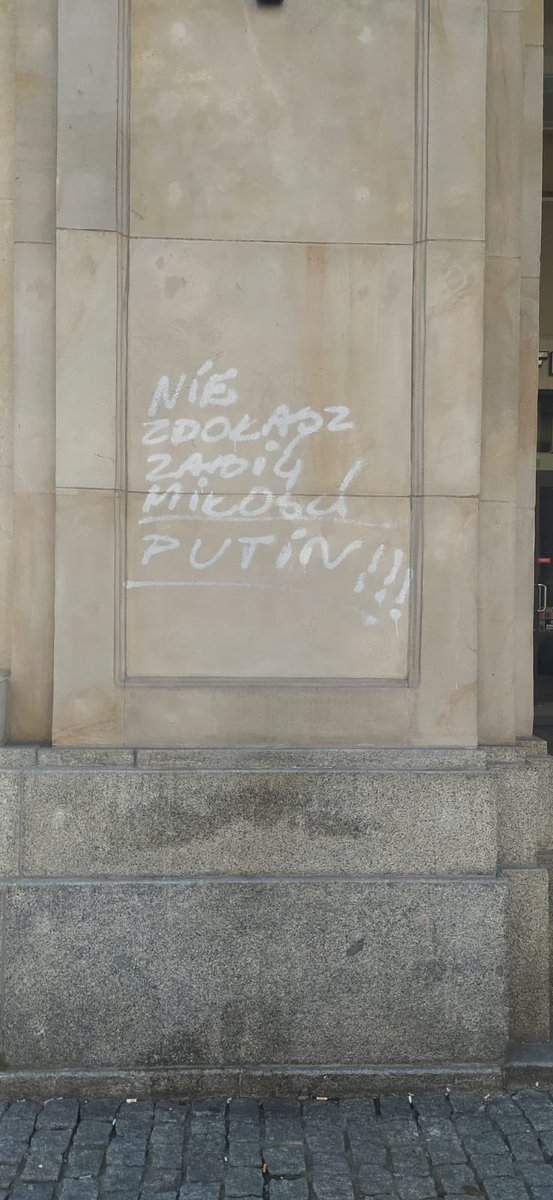 NIE
ZDOŁASZ
ZABIĆ
MIŁOŚĆ!
PUTIN!!!